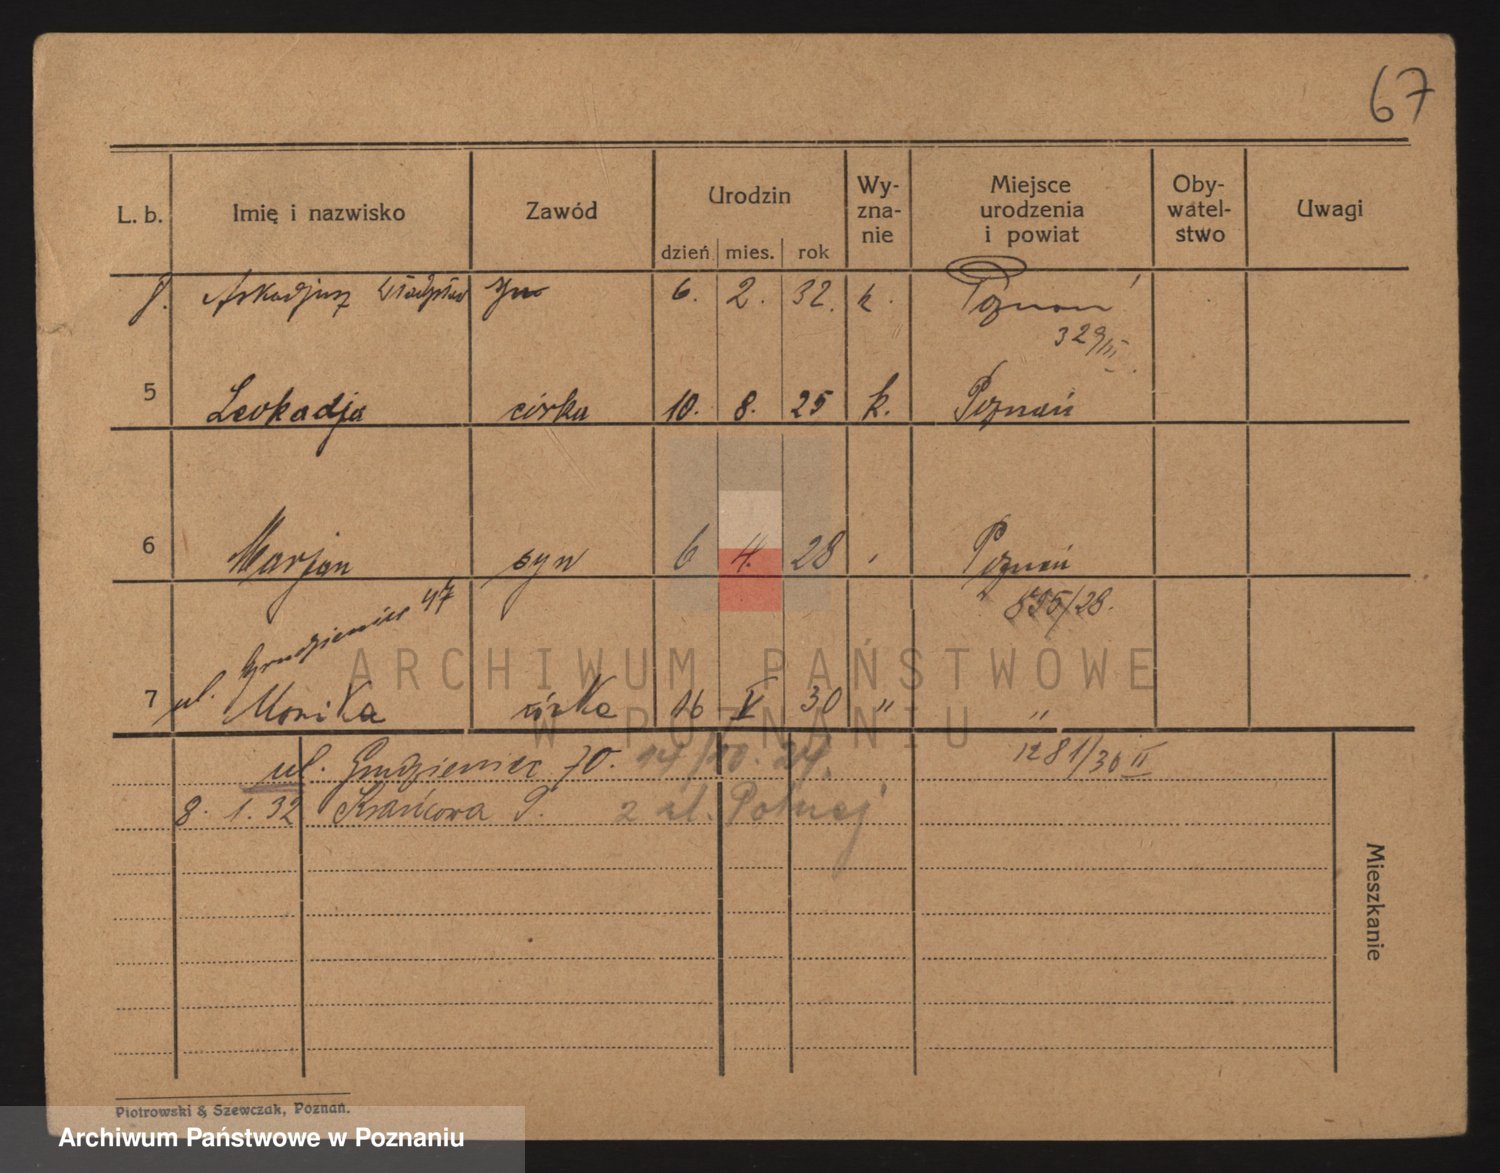 67
L. b. Imię i nazwisko Zawód Urodzin Wy-zna-nie Miejsce urodzenia i powiat Oby-watel-stwo Uwagi
dzień mies. rok
8. Arkadjusz Władysław syn 6. 2. 32. k. Poznań
329/III
5 Leokadja córka 10. 8. 25 k. Poznań
6 Marjan syn 6 4. 28 Poznań
ul. Grudzieniec 47
7 Monika córka 16 V 30 " "
ul. Grudzieniec 70. 14/10. 24.
1281/30 II
8. 1. 32 Krańcowa 9. z ul. Polnej
Mieszkanie
Piotrowski & Szewczak, Poznań.
ARCHIWUM PAŃSTWOWE
W POZNANIU
Archiwum Państwowe w Poznaniu